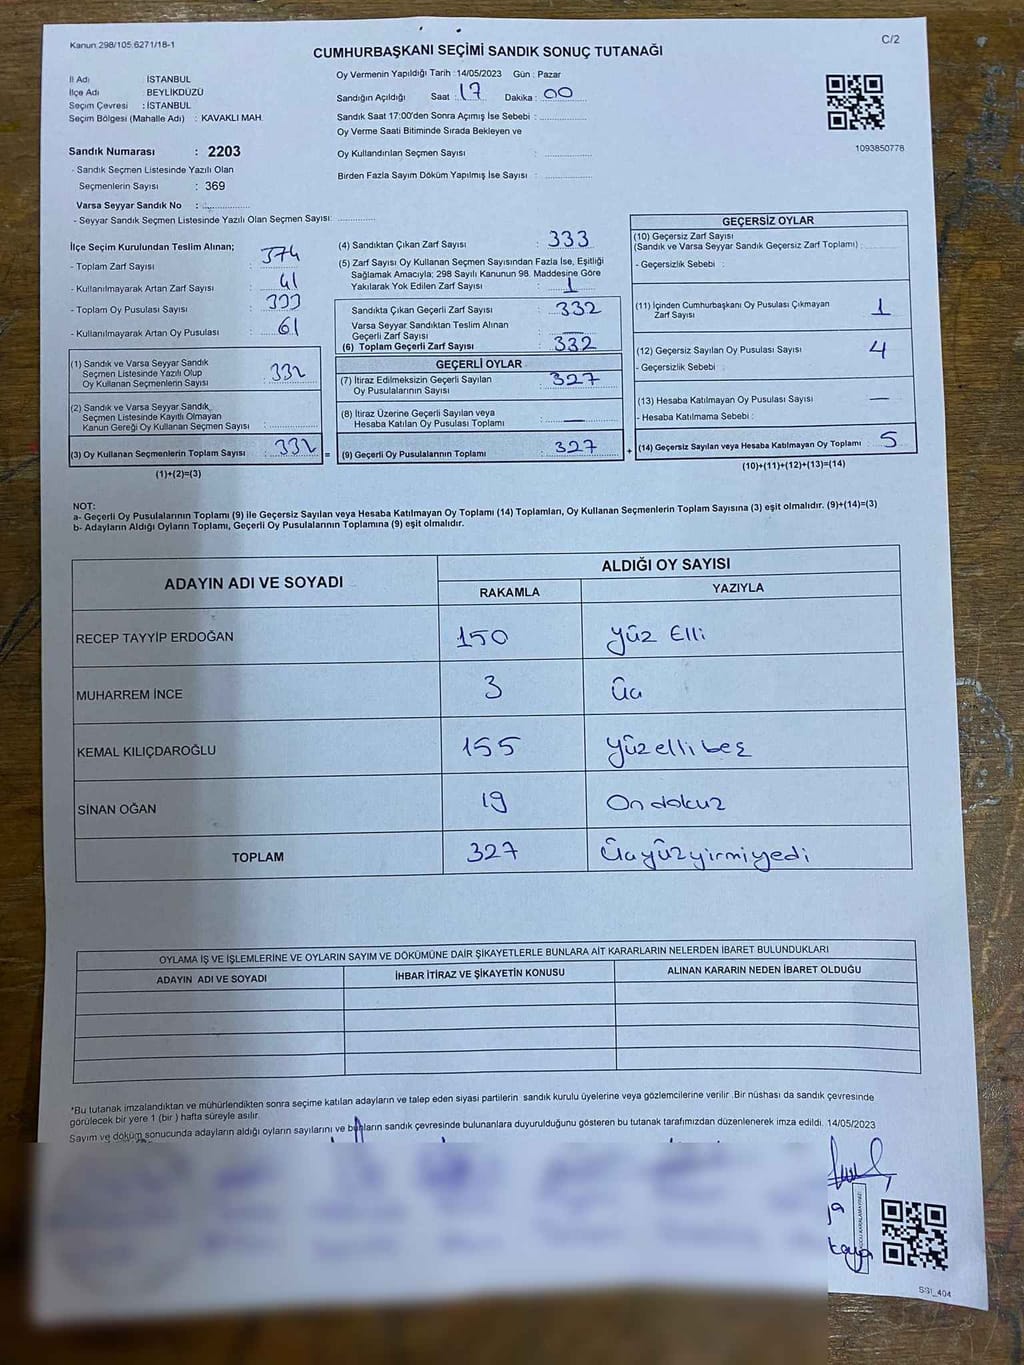 Kanun 298/105 6271/18-1
C/2
CUMHURBAŞKANI SEÇİMİ SANDIK SONUÇ TUTANAĞI
İl Adı : İSTANBUL
İlçe Adı : BEYLİKDÜZÜ
Seçim Çevresi : İSTANBUL
Seçim Bölgesi (Mahalle Adı) : KAVAKLI MAH.
Oy Vermenin Yapıldığı Tarih : 14/05/2023 Gün : Pazar
Sandığın Açıldığı Saat : 17 Dakika : 00
Sandık Saat 17:00'den Sonra Açımış İse Sebebi :
Oy Verme Saati Bitiminde Sırada Bekleyen ve
Oy Kullandırılan Seçmen Sayısı :
Birden Fazla Sayım Döküm Yapılmış İse Sayısı :
1093850778
Sandık Numarası : 2203
- Sandık Seçmen Listesinde Yazılı Olan
Seçmenlerin Sayısı : 369
Varsa Seyyar Sandık No :
- Seyyar Sandık Seçmen Listesinde Yazılı Olan Seçmen Sayısı:
İlçe Seçim Kurulundan Teslim Alınan;
- Toplam Zarf Sayısı : 374
- Kullanılmayarak Artan Zarf Sayısı : 41
- Toplam Oy Pusulası Sayısı : 393
- Kullanılmayarak Artan Oy Pusulası : 61
(1) Sandık ve Varsa Seyyar Sandık
Seçmen Listesinde Yazılı Olup
Oy Kullanan Seçmenlerin Sayısı : 332
(2) Sandık ve Varsa Seyyar Sandık
Seçmen Listesinde Kayıtlı Olmayan
Kanun Gereği Oy Kullanan Seçmen Sayısı :
(3) Oy Kullanan Seçmenlerin Toplam Sayısı : 332
(1)+(2)=(3)
=
(4) Sandıktan Çıkan Zarf Sayısı : 333
(5) Zarf Sayısı Oy Kullanan Seçmen Sayısından Fazla İse, Eşitliği
Sağlamak Amacıyla; 298 Sayılı Kanunun 98. Maddesine Göre
Yakılarak Yok Edilen Zarf Sayısı : 1
Sandıkta Çıkan Geçerli Zarf Sayısı : 332
Varsa Seyyar Sandıktan Teslim Alınan
Geçerli Zarf Sayısı : —
(6) Toplam Geçerli Zarf Sayısı : 332
GEÇERLİ OYLAR
(7) İtiraz Edilmeksizin Geçerli Sayılan
Oy Pusulalarının Sayısı : 327
(8) İtiraz Üzerine Geçerli Sayılan veya
Hesaba Katılan Oy Pusulası Toplamı : —
(9) Geçerli Oy Pusulalarının Toplamı : 327
+
GEÇERSİZ OYLAR
(10) Geçersiz Zarf Sayısı
(Sandık ve Varsa Seyyar Sandık Geçersiz Zarf Toplamı) :
- Geçersizlik Sebebi :
(11) İçinden Cumhurbaşkanı Oy Pusulası Çıkmayan
Zarf Sayısı : 1
(12) Geçersiz Sayılan Oy Pusulası Sayısı : 4
- Geçersizlik Sebebi :
(13) Hesaba Katılmayan Oy Pusulası Sayısı : —
- Hesaba Katılmama Sebebi :
(14) Geçersiz Sayılan veya Hesaba Katılmayan Oy Toplamı : 5
(10)+(11)+(12)+(13)=(14)
NOT:
a- Geçerli Oy Pusulalarının Toplamı (9) ile Geçersiz Sayılan veya Hesaba Katılmayan Oy Toplamı (14) Toplamları, Oy Kullanan Seçmenlerin Toplam Sayısına (3) eşit olmalıdır. (9)+(14)=(3)
b- Adayların Aldığı Oyların Toplamı, Geçerli Oy Pusulalarının Toplamına (9) eşit olmalıdır.
ADAYIN ADI VE SOYADI ALDIĞI OY SAYISI
RAKAMLA YAZIYLA
RECEP TAYYİP ERDOĞAN 150 Yüz Elli
MUHARREM İNCE 3 Üç
KEMAL KILIÇDAROĞLU 155 Yüzellibeş
SİNAN OĞAN 19 On dokuz
TOPLAM 327 Üçyüzyirmiyedi
OYLAMA İŞ VE İŞLEMLERİNE VE OYLARIN SAYIM VE DÖKÜMÜNE DAİR ŞİKAYETLERLE BUNLARA AİT KARARLARIN NELERDEN İBARET BULUNDUKLARI
ADAYIN ADI VE SOYADI İHBAR İTİRAZ VE ŞİKAYETİN KONUSU ALINAN KARARIN NEDEN İBARET OLDUĞU
*Bu tutanak imzalandıktan ve mühürlendikten sonra seçime katılan adayların ve talep eden siyasi partilerin sandık kurulu üyelerine veya gözlemcilerine verilir .Bir nüshası da sandık çevresinde
görülecek bir yere 1 (bir ) hafta süreyle asılır.
Sayım ve döküm sonucunda adayların aldığı oyların sayılarını ve bunların sandık çevresinde bulunanlara duyurulduğunu gösteren bu tutanak tarafımızdan düzenlenerek imza edildi. 14/05/2023
SS1_404